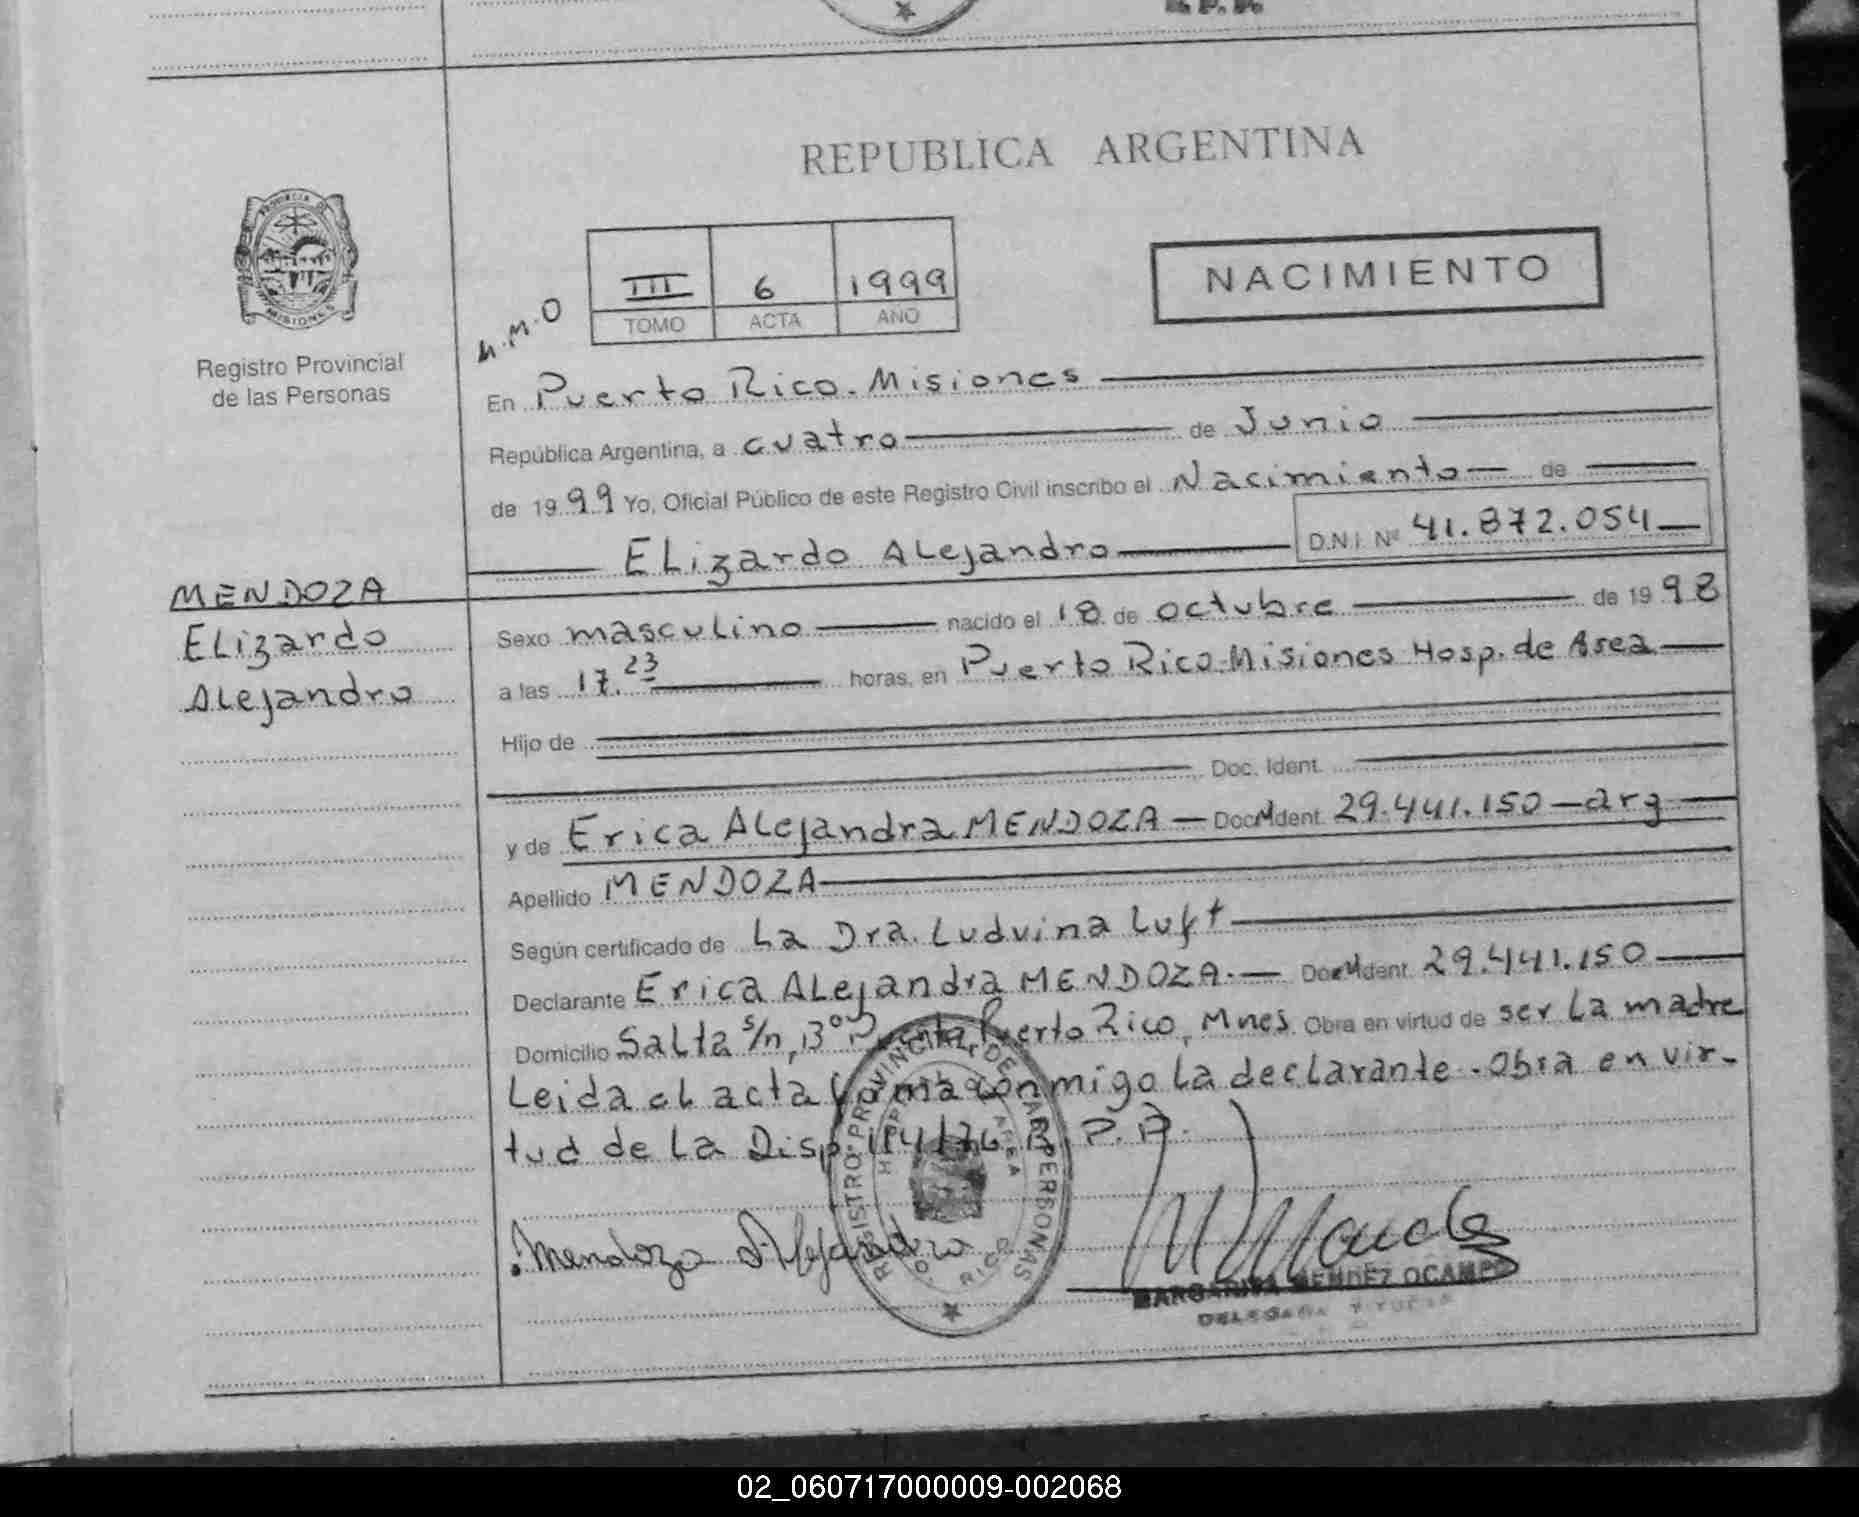 REPUBLICA ARGENTINA
PROVINCIA DE
MISIONES
Registro Provincial
de las Personas
III 6 1999
TOMO ACTA AÑO
M.M.O
NACIMIENTO
En Puerto Rico. Misiones
República Argentina, a cuatro de Junio
de 1999 Yo, Oficial Público de este Registro Civil inscribo el Nacimiento de
Elizardo Alejandro D.N.I. Nº 41.872.054
MENDOZA
Elizardo
Alejandro
Sexo masculino nacido el 18 de octubre de 1998
a las 17.23 horas, en Puerto Rico-Misiones Hosp. de Area
Hijo de
Doc. Ident.
y de Erica Alejandra MENDOZA Doc. Ident. 29.441.150-arg
Apellido MENDOZA
Según certificado de La Dra. Ludvina Luft
Declarante Erica Alejandra MENDOZA. Doc. Ident. 29.441.150
Domicilio Salta s/n, Bº Puerto Rico, Mnes. Obra en virtud de ser la madre
Leida el acta firma conmigo la declarante. Obra en vir-
tud de la Disp. 114/76 R.P.P.
Mendoza Alejandra
REGISTRO PROVINCIAL DE LAS PERSONAS
RICO
MARGARITA MENDEZ OCAMPO
DELEGADA TITULAR
02_060717000009-002068